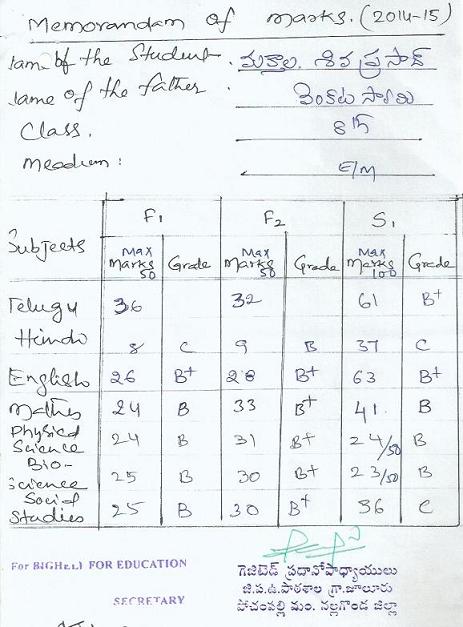 Memorandam of marks. (2014-15)
Name of the Student. మక్తాల. శివ ప్రసాద్
Name of the father. వెంకట స్వామి
Class. 8th
Meadium: E/M
Subjects F1 F2 S1
Max Marks 50 Grade Max Marks 50 Grade Max Marks 100 Grade
Telugu 36 32 61 B+
Hindo 8 C 9 B 37 C
English 26 B+ 28 B+ 63 B+
Mathes 24 B 33 B+ 41 B
Physical Science 24 B 31 B+ 24/50 B
Bio-Science 25 B 30 B+ 23/50 B
Social Studies 25 B 30 B+ 36 C
For B(GHE..) FOR EDUCATION
SECRETARY
గెజిటెడ్ ప్రదానోపాధ్యాయులు
జి.ప.ఉ.పాఠశాల గ్రా.జూలూరు
పోచంపల్లి మం. నల్లగొండ జిల్లా